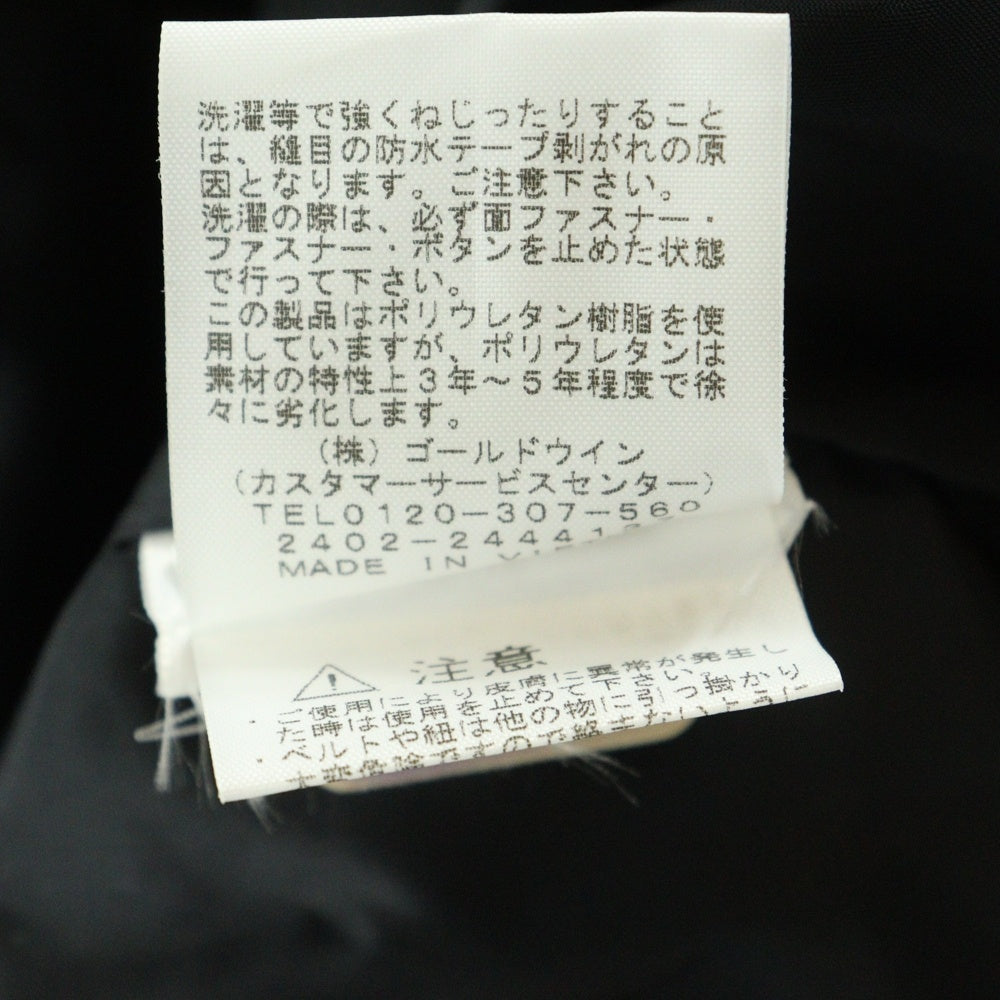 洗濯等で強くねじったりすること
は、縫目の防水テープ剥がれの原
因となります。ご注意下さい。
洗濯の際は、必ず面ファスナー・
ファスナー・ボタンを止めた状態
で行って下さい。
この製品はポリウレタン樹脂を使
用していますが、ポリウレタンは
素材の特性上3年～5年程度で徐
々に劣化します。
(株) ゴールドウイン
(カスタマーサービスセンター)
TEL0120-307-560
2402-24441
MADE IN
注意
・ご使用により皮膚に異常が発生し
た時は使用を止めて下さい。
・ベルトや紐は他の物に引っ掛かり
大変危険ですので絡まないように